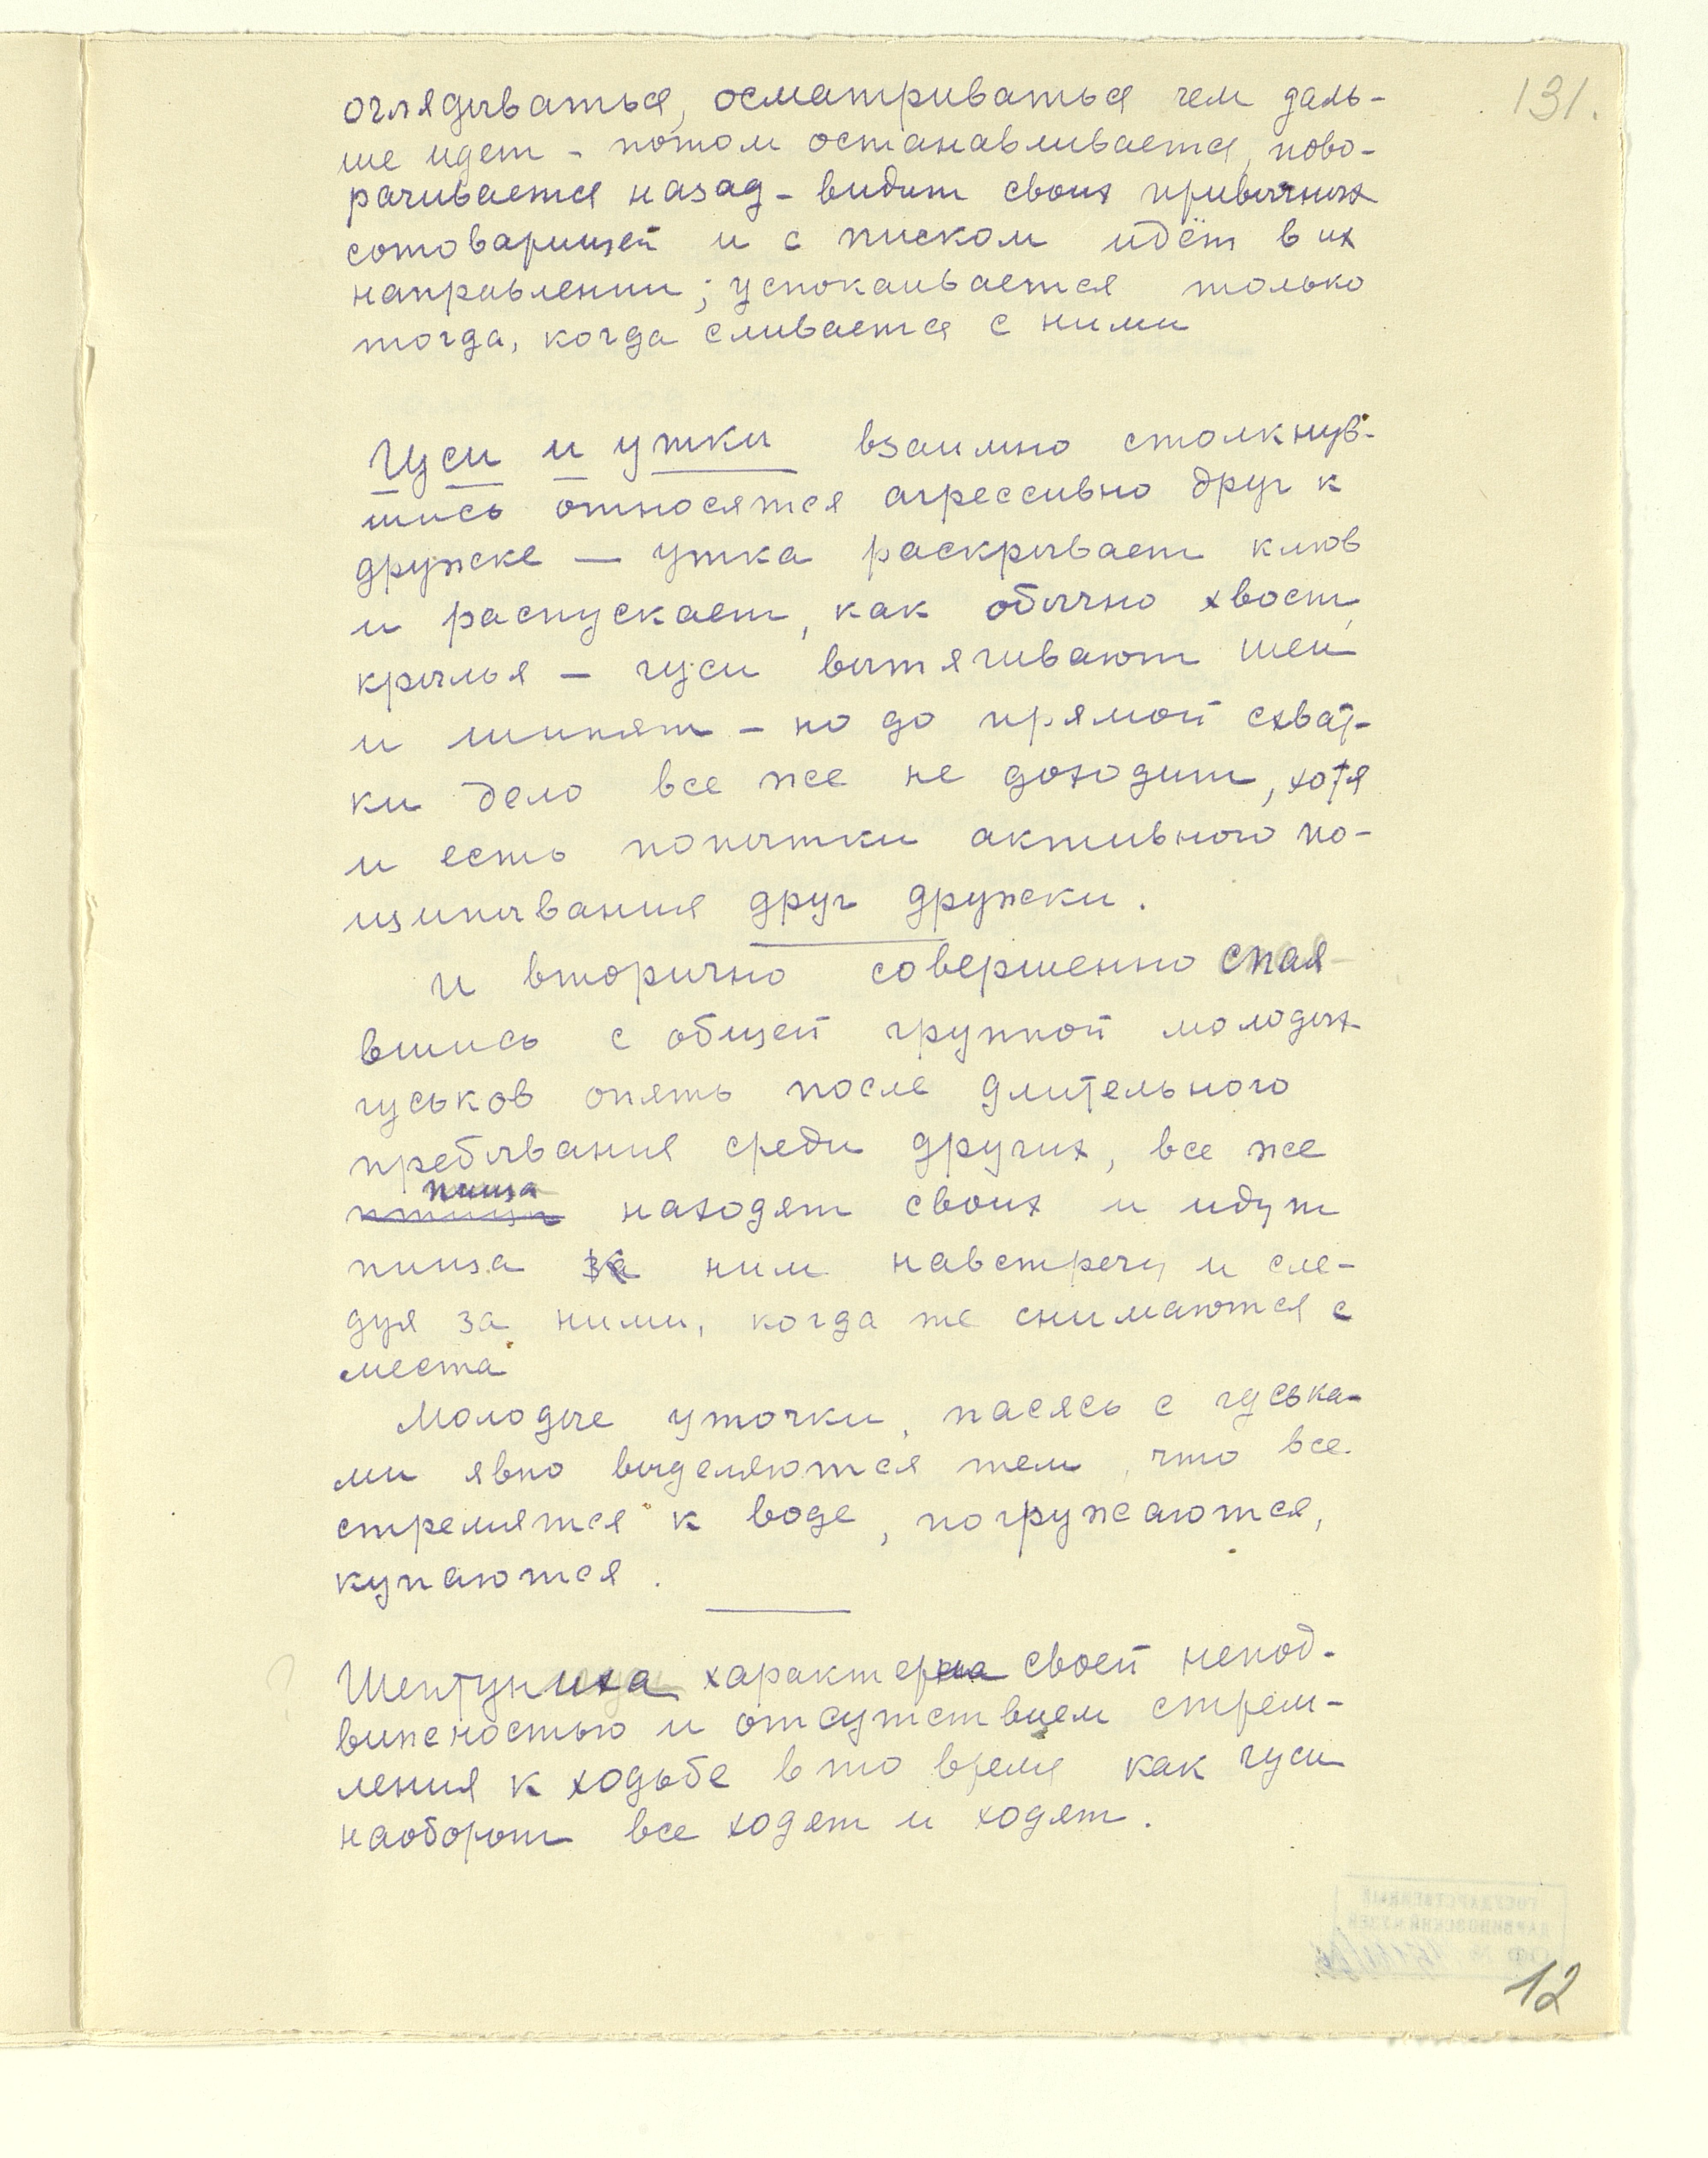 131.
оглядываться, осматриваться чем даль-
ше идет - потом останавливается, пово-
рачивается назад - видит своих привычных
сотоварищей и с писком идёт в их
направлении; успокаивается только
тогда, когда сливается с ними
Гуси и утки взаимно столкнув-
шись относятся агрессивно друг к
дружке — утка раскрывает клюв
и распускает, как обычно хвост,
крылья - гуси вытягивают шеи
и шипят - но до прямой схват-
ки дело все же не доходит, хотя
и есть попытки активного по-
щипывания друг дружки.
И вторично совершенно спая
вшись с общей группой молодых
гуськов опять после длительного
пребывания среди других, все же
пища
птицы находят своих и идут
пища за ним навстречу и сле-
дуя за ними, когда же снимаются с
места
Молодые уточки, пасясь с гуська-
ми явно выделяются тем, что все
стремятся к воде, погружаются,
купаются.
Шептуниха характерна своей непод-
вижностью и отсутствием стрем-
ления к ходьбе в то время как гуси
наоборот все ходят и ходят.
ГОСУДАРСТВЕННЫЙ
ДАРВИНОВСКИЙ МУЗЕЙ
12